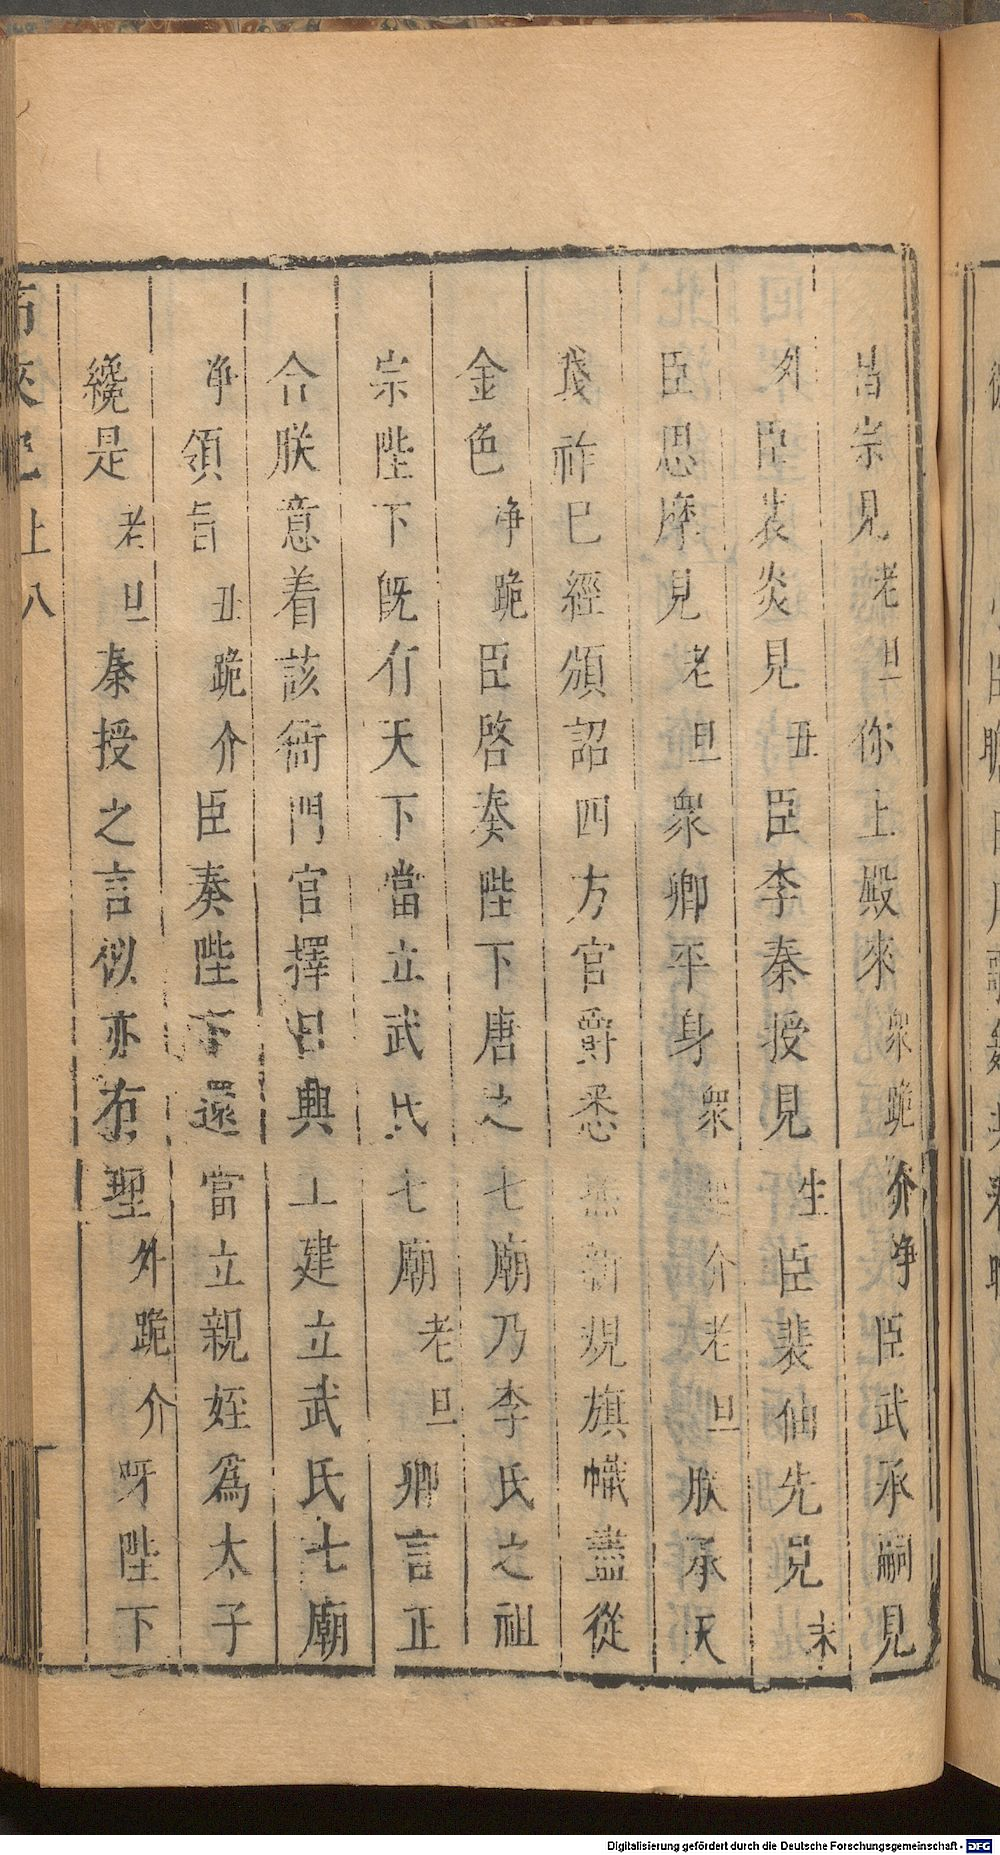 昌宗見老旦你上殿來衆跪介净臣武承嗣見
外臣裴炎見丑臣李秦授見生臣裴伷先見末
臣思摩見老旦衆卿平身衆起介老旦朕承天
踐祚已經頒詔四方官爵悉照新規旗幟盡從
金色净跪臣啓奏陛下唐之七廟乃李氏之祖
宗陛下既有天下當立武氏七廟老旦卿言正
合朕意着該衙門官擇日興工建立武氏七廟
净領旨丑跪介臣奏陛下還當立親姪爲太子
纔是老旦秦授之言似亦有理外跪介呀陛下
上 八
Digitalisierung gefördert durch die Deutsche Forschungsgemeinschaft - DFG